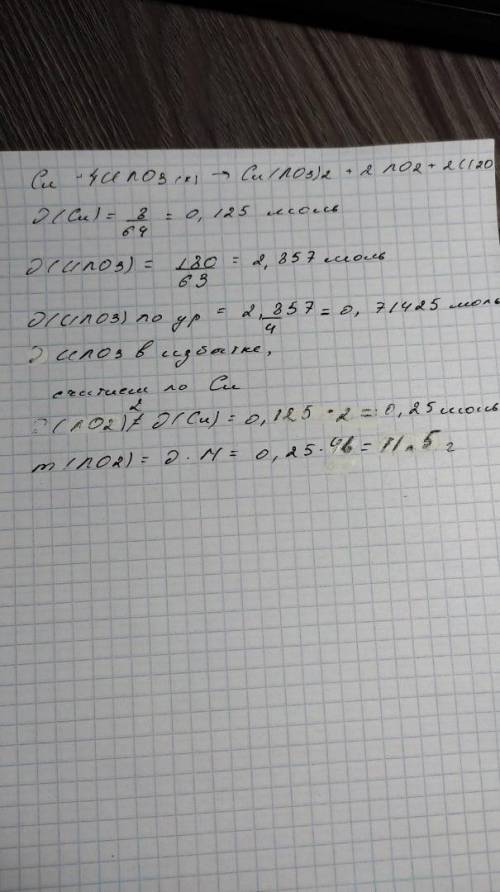 Cu + 4HNO3(к) → Cu(NO3)2 + 2NO2 + 2H2O
∂(Cu) = 8/64 = 0,125 моль
∂(HNO3) = 180/63 = 2,857 моль
∂(HNO3) по ур = 2,857/4 = 0,71425 моль
∂ HNO3 в избытке,
считаем по Cu
∂(NO2) = 2 ∂(Cu) = 0,125 · 2 = 0,25 моль
m(NO2) = ∂ · M = 0,25 · 46 = 11.5 г